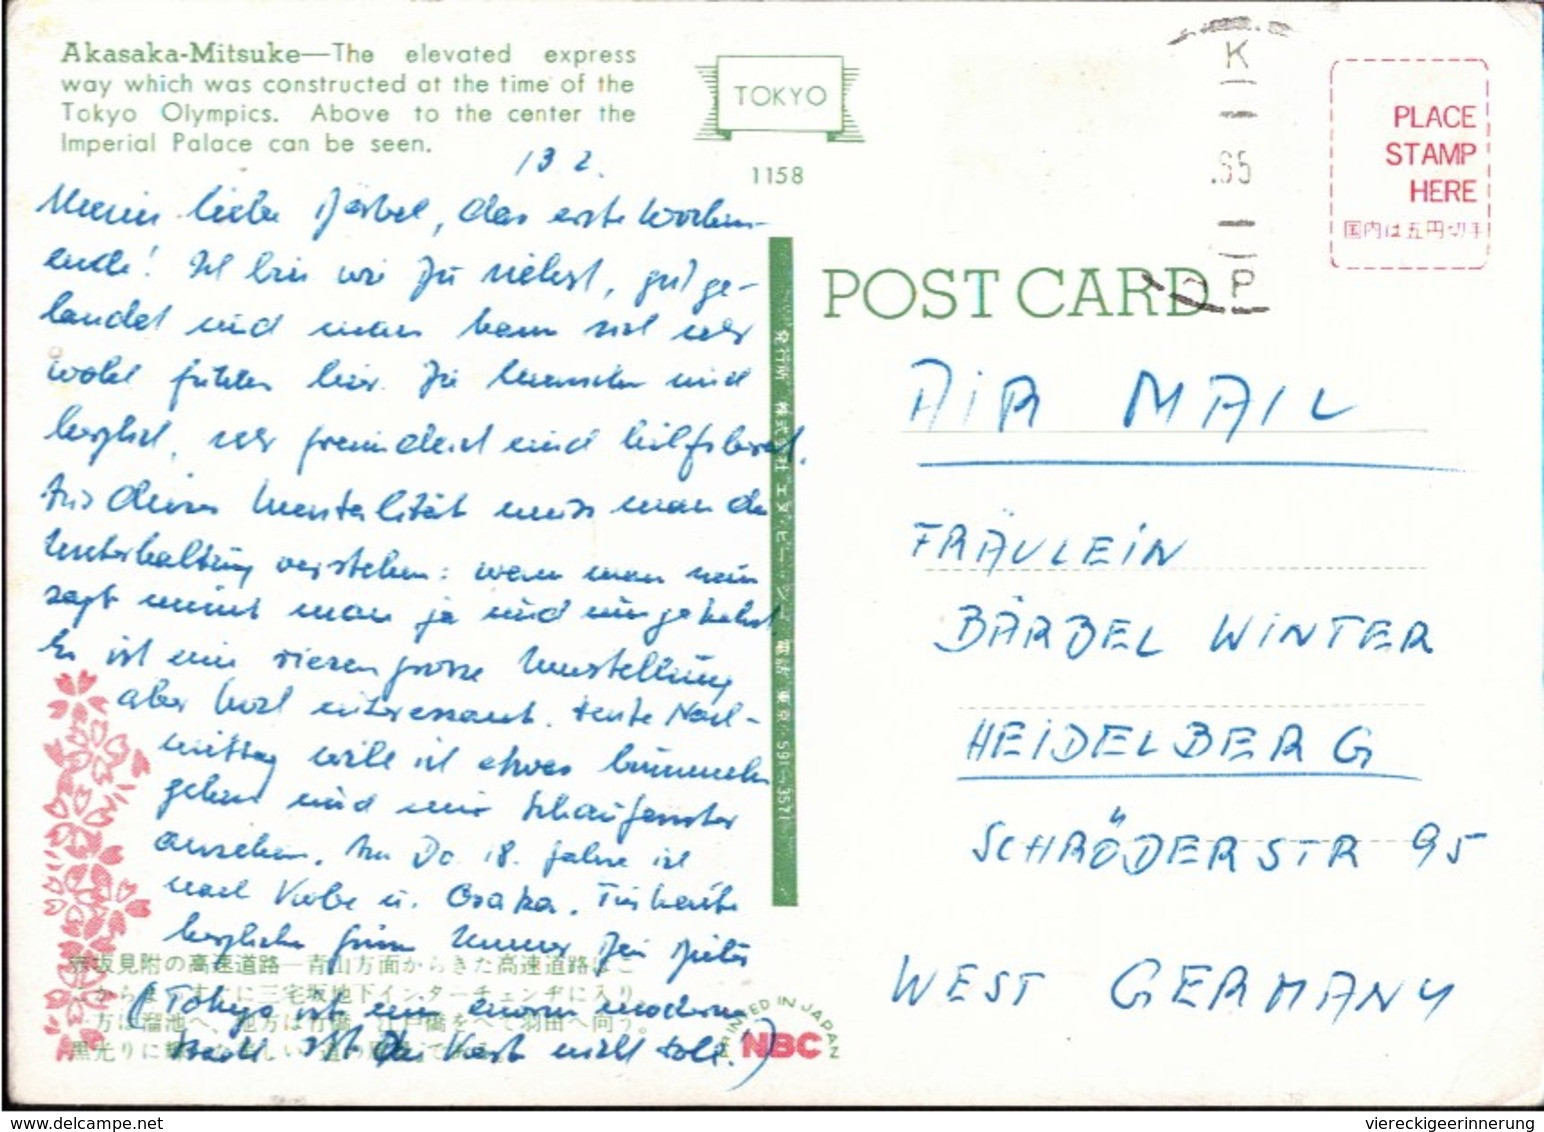 Akasaka-Mitsuke—The elevated express
way which was constructed at the time of the
Tokyo Olympics. Above to the center the
Imperial Palace can be seen.
TOKYO
1158
K
.65
P
PLACE
STAMP
HERE
国内は五円切手
POST CARD
13 2.
Meine liebe Bärbel, das erste Wochen-
ende! Ich bin wie Du siehst, gut ge-
landet und man kann sich sehr
wohl fühlen hier. Die Menschen sind
herzlich, sehr freundlich und hilfsbereit.
Aus dieser Mentalität muss man die
Unterhaltung verstehen: wenn man nein
sagt meint man ja und umgekehrt.
Es ist eine riesen grosse Umstellung
aber hoch interessant. Heute Nach-
mittag will ich etwas bummeln
gehen und mir Schaufenster
ansehen. Am Do. 18. fahre ich
nach Kobe u. Osaka. Für heute
herzliche Grüsse Immer Dein Dieter
(Tokyo ist eine enorm moderne
Stadt. Ist die Karte nicht toll!)
AIR MAIL
FRÄULEIN
BÄRBEL WINTER
HEIDELBERG
SCHRÖDERSTR 95
WEST GERMANY
発行所 株式会社 エヌ・ビー・シー 電話 東京 591-3571
赤坂見附の高速道路—青山方面からきた高速道路はこ
三宅坂地下インターチェンヂに入り、
方は溜池へ、他方は竹橋、江戸橋をへて羽田へ向う。
黒光りに
PRINTED IN JAPAN
NBC
delcampe.net
viereckigeerinnerung